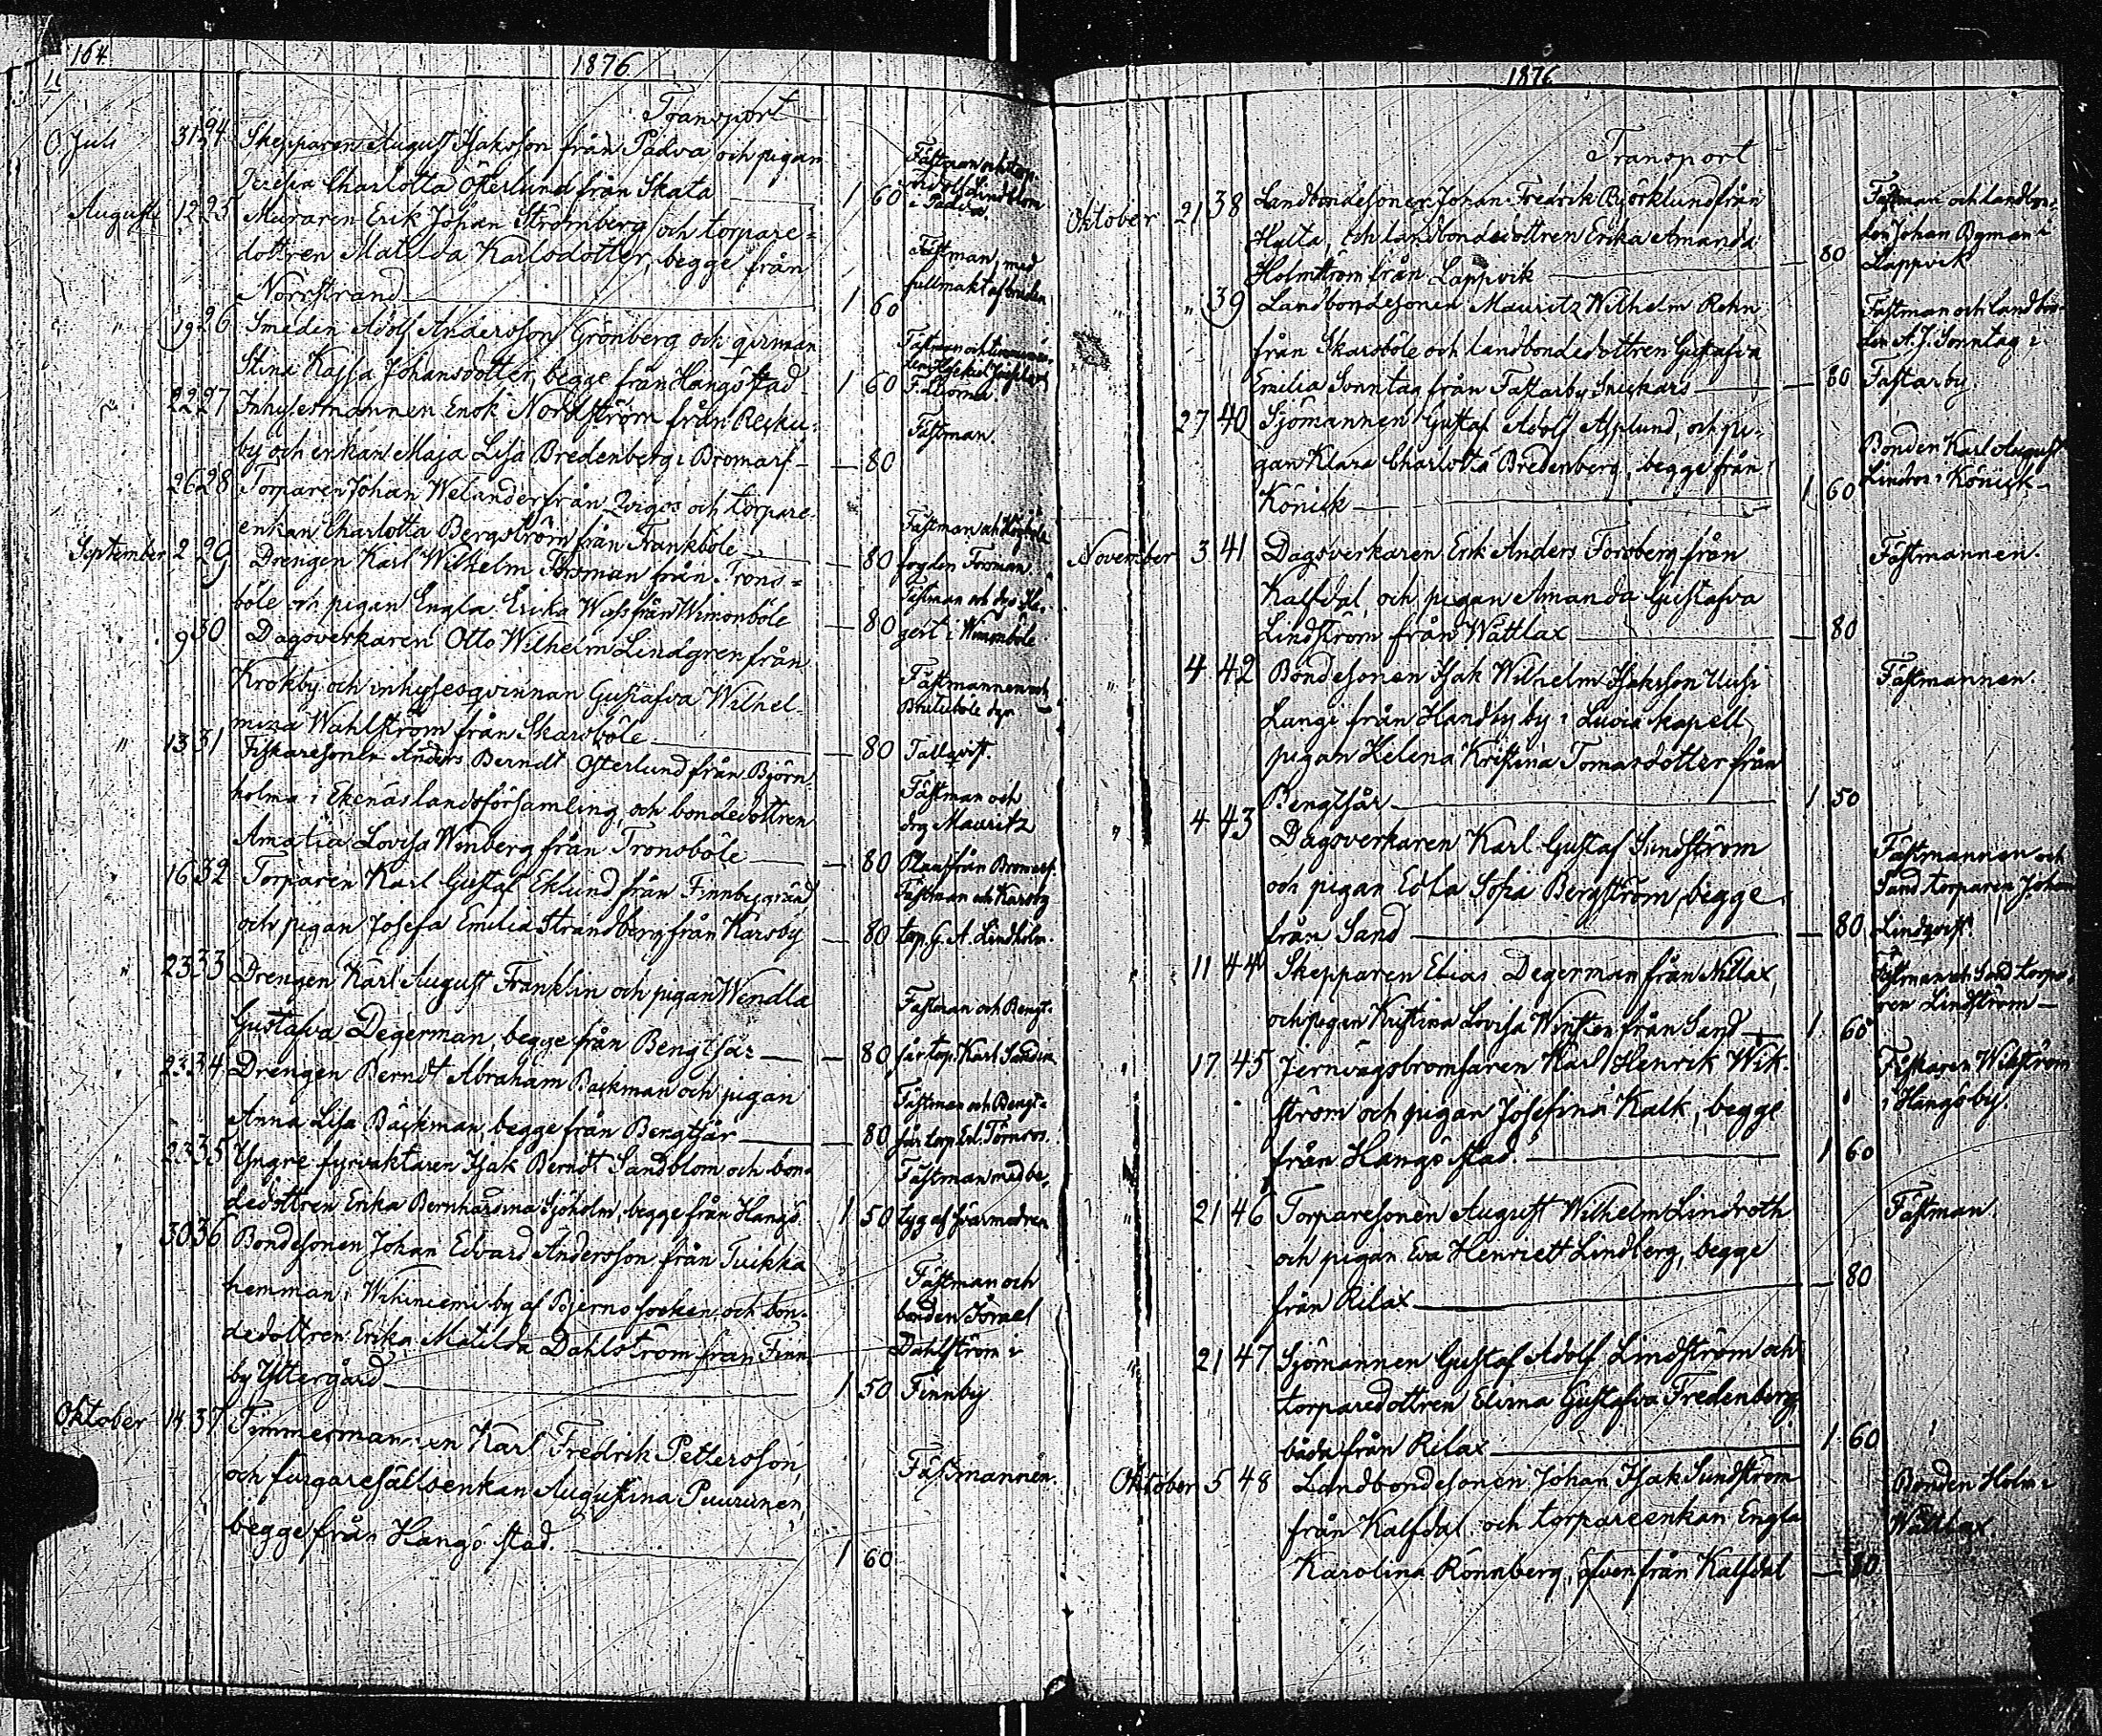 164.
1876.
Transport
Juli 31 24 Skepparen August Isaksson från Padva och pigan
Charlotta Österlund från Skata — 1 60
Fästman och torp.
Adolf Lindblom
i Padva.
Augusti 12 25 Muraren Erik Johan Strömberg och torpare-
dottren Matilda Karlsdotter, begge från
Norrstrand — 1 60
Fästman, med
fullmakt af bruden
" 19 26 Smeden Adolf Andersson Grönberg och qvinnan
Stina Kajsa Johansdotter, begge från Hangö stad 1 60
Fästman och
" 22 27 Inhysesmannen Enok Nordström från Recku-
by och enkan Maja Lisa Bredenberg i Bromarf — 80
Fästman.
" 26 28 Torparen Johan Welander från och torpare-
enkan Charlotta Bergström från Frankböle — 80
Fästman och
fogden Forsman.
September 2 29 Drengen Karl Wilhelm Forsman från Trons-
böle och pigan Engla Erika från Wimonböle — 80
Fästman och
i Wimonböle
" 9 30 Dagsverkaren Otto Wilhelm Lindgren från
Krokby och inhysesqvinnan Gustafva Wilhel-
mina Wahlström från Skarsböle — 80
Fästmannen och
Tallqvist.
" 13 31 Fiskaresonen Anders Berndt Österlund från Björn-
holma i Ekenäs landsförsamling, och bondedottren
Amalia Lovisa Winberg från Tronsböle — 80
Fästman och
drg Mauritz
från Bromarf.
" 16 32 Torparen Karl Gustaf Eklund från Finnby
och pigan Josefa Emilia Strandberg från Karsby — 80
Fästman och Karsby
torp. G. A. Lindholm.
" 23 33 Drengen Karl August Franklin och pigan Wendla
Gustafva Degerman, begge från Bengtsår — 80
Fästman och Bengt-
sår torp. Karl Sandin
" 23 34 Drengen Berndt Abraham Backman och pigan
Anna Lisa Bäckman, begge från Bengtsår — 80
Fästman och Bengt-
sår torp. Ed. Törnros.
" 23 35 Yngre fyrvaktaren Isak Berndt Sandblom och bon-
dedottren Erika Bernhardina Sjöholm, begge från Hangö. 1 50
Fästman med be-
tyg af svärmodren
" 30 36 Bondesonen Johan Edvard Andersson från Tuikka
hemman i Wihiniemi by af Bjerno socken och bon-
dedottren Erika Matilda Dahlström från Finn-
by Yttergård — 1 50
Fästman och
bonden Israel
Dahlström i
Finnby
Oktober 14 37 Timmermannen Karl Fredrik Pettersson,
och Augustina Puurunen,
begge från Hangö stad. — 1 60
Fästmannen.
1876.
Transport
Oktober 21 38 Landbondesonen Johan Fredrik Björklund från
Hulta, och landbondedottren Erika Amanda
Holmström från Lappvik — 80
Fästman och landbon-
den Johan Byman i
Lappvik
" " 39 Landbondesonen Mauritz Wilhelm Rehn
från Skarsböle och landbondedottren Gustafva
Emilia Sonntag från Fastarby Snickars — 80
Fästman och landbon-
den A. J. Sonntag i
Fastarby.
27 40 Sjömannen Gustaf Adolf Asplund, och pi-
gan Klara Charlotta Bredenberg, begge från
Könick — 1 60
Bonden Karl August
Lindros i Könick —
November 3 41 Dagsverkaren Erik Anders Forsberg från
Kalfdal, och pigan Amanda Gustafva
Lindström från Wättlax — 80
Fästmannen.
" 4 42 Bondesonen Isak Wilhelm Isaksson Uusi
Lungi från by i Luvia kapell,
pigan Helena Kristina Tomasdotter från
Bengtsår — 1 50
Fästmannen.
" 4 43 Dagsverkaren Karl Gustaf Sundström
och pigan Edla Sofia Bergström, begge
från Sand — 80
Fästmannen och
Sand torparen Johan
Lindqvist
" 11 44 Skepparen Elias Degerman från Näsax,
och pigan Kristina Lovisa Wintter från Sand — 1 60
Fästman och Sand torpa-
ren Lindström —
" 17 45 Jernvägsbromsaren Karl Henrik Wik-
ström och pigan Josefina Kalk, begge
från Hangö stad. — 1 60
Fiskaren Wikström
i Hangöby.
" 21 46 Torparesonen August Wilhelm Lindroth
och pigan Eva Henriett Lindberg, begge
från Rilax — 80
Fästman.
" 21 47 Sjömannen Gustaf Adolf Lindström och
torparedottren Elvina Gustafva Fredenberg
båda från Rilax — 1 60
Oktober 5 48 Landbondesonen Johan Isak Sundström
från Kalfdal, och torpareenkan Engla
Karolina Rönnberg, äfven från Kalfdal — 80
Bonden Holm i
Wättlax.